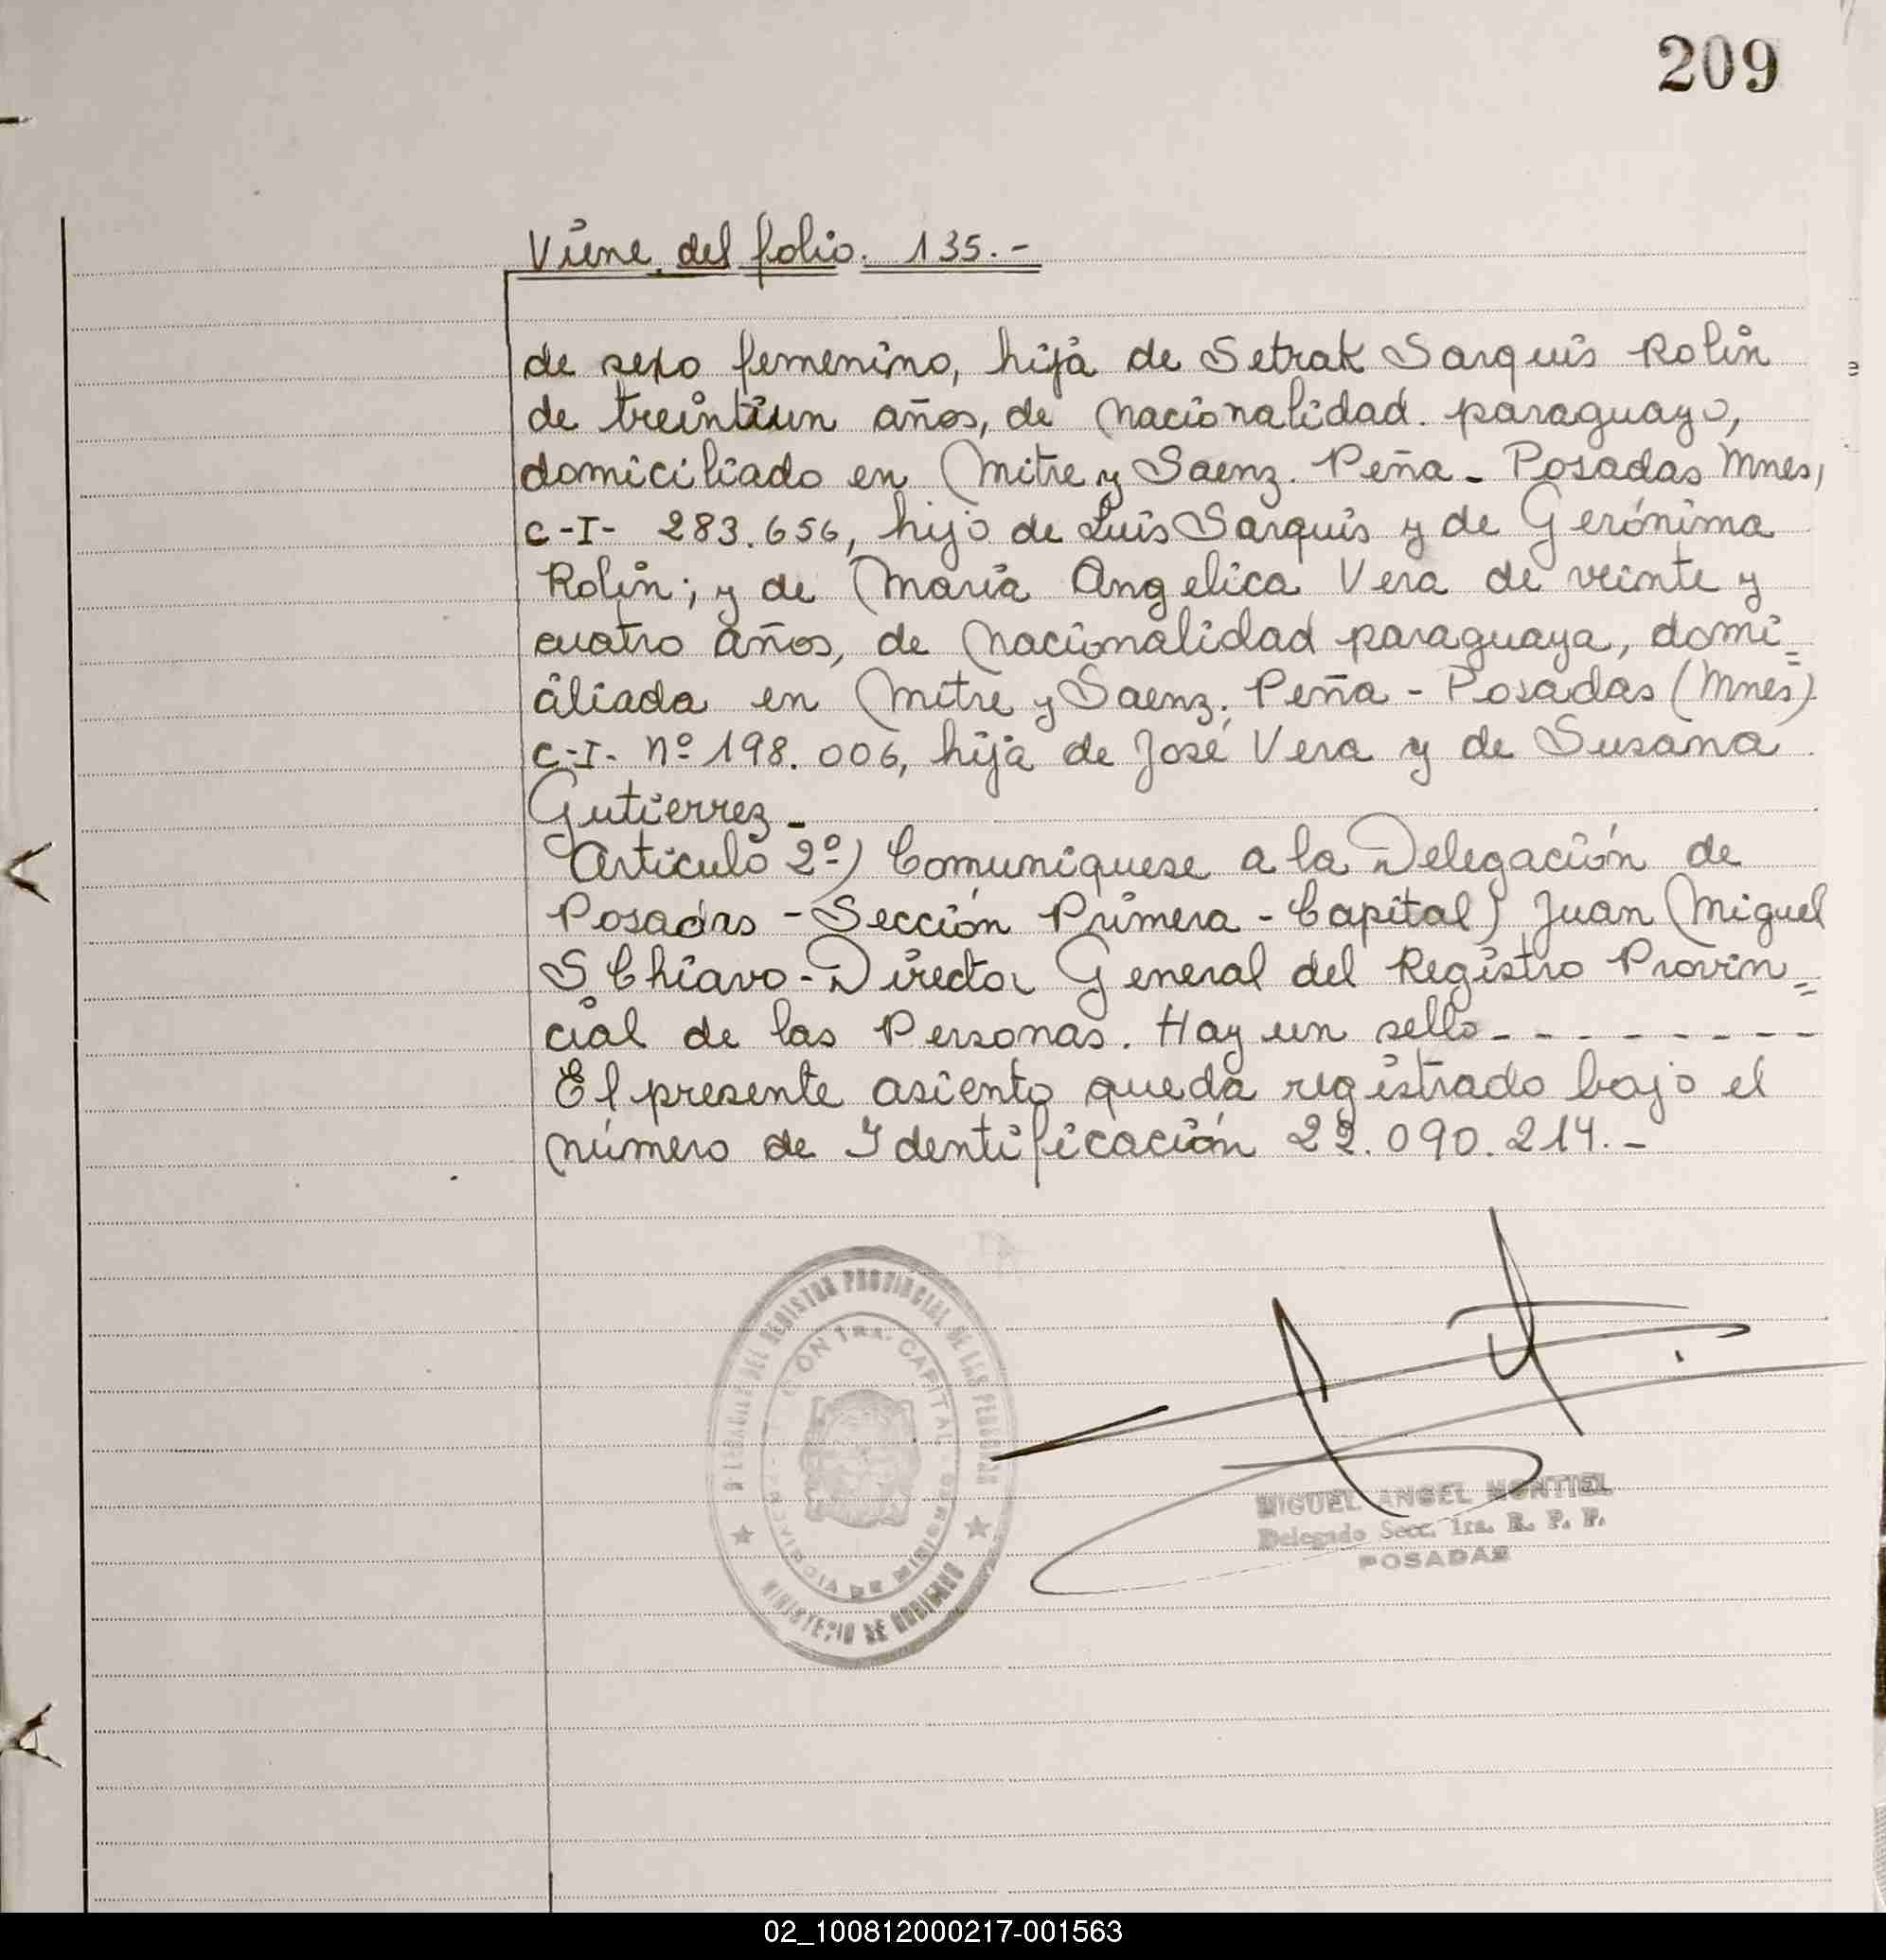 209
Viene del folio. 135.-
de sexo femenino, hija de Setrak Sarquis Rolin
de treintiun años, de nacionalidad paraguayo,
domiciliado en Mitre y Saenz. Peña - Posadas Mnes,
C-I- 283.656, hijo de Luis Sarquis y de Gerónima
Rolin; y de Maria Angelica Vera de veinte y
cuatro años, de nacionalidad paraguaya, domi=
ciliada en Mitre y Saenz. Peña - Posadas (Mnes)
C-I- Nº 198.006, hija de José Vera y de Susana
Gutierrez -
Articulo 2º) Comuniquese a la Delegación de
Posadas - Sección Primera - Capital) Juan Miguel
SChiavo - Director General del Registro Provin=
cial de las Personas. Hay un sello - - - - - - - -
El presente asiento queda registrado bajo el
número de Identificación 22.090.214.-
DEL REGISTRO PROVINCIAL DE LAS PERSONAS
1ra. CAPITAL
PROVINCIA DE MISIONES
MINISTERIO DE GOBIERNO
MIGUEL ANGEL MONTIEL
Delegado Secc. 1ra. R. P. P.
POSADAS
02_100812000217-001563